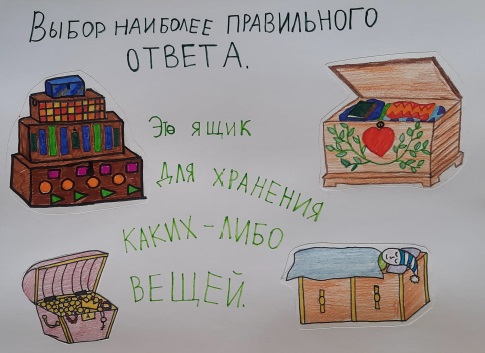 ВЫБОР НАИБОЛЕЕ ПРАВИЛЬНОГО
ОТВЕТА.
Это ЯЩИК
ДЛЯ ХРАНЕНИЯ
КАКИХ-ЛИБО
ВЕЩЕЙ.